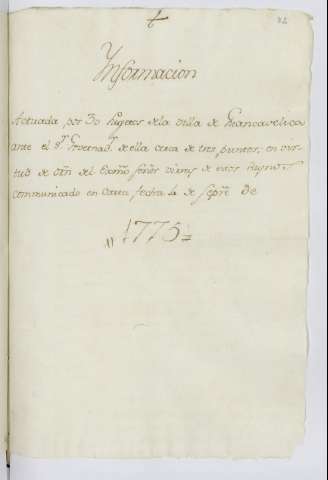 Ynformacion
Actuada por 30 sugetos de la villa de Huancavelica
ante el Sr. Governadr. de ella cerca de tres puntos, en vir-
tud de orn. del Exmo señor virrey de estos Reynos
communicado en carta fecha 4 de Sepre. de
1775